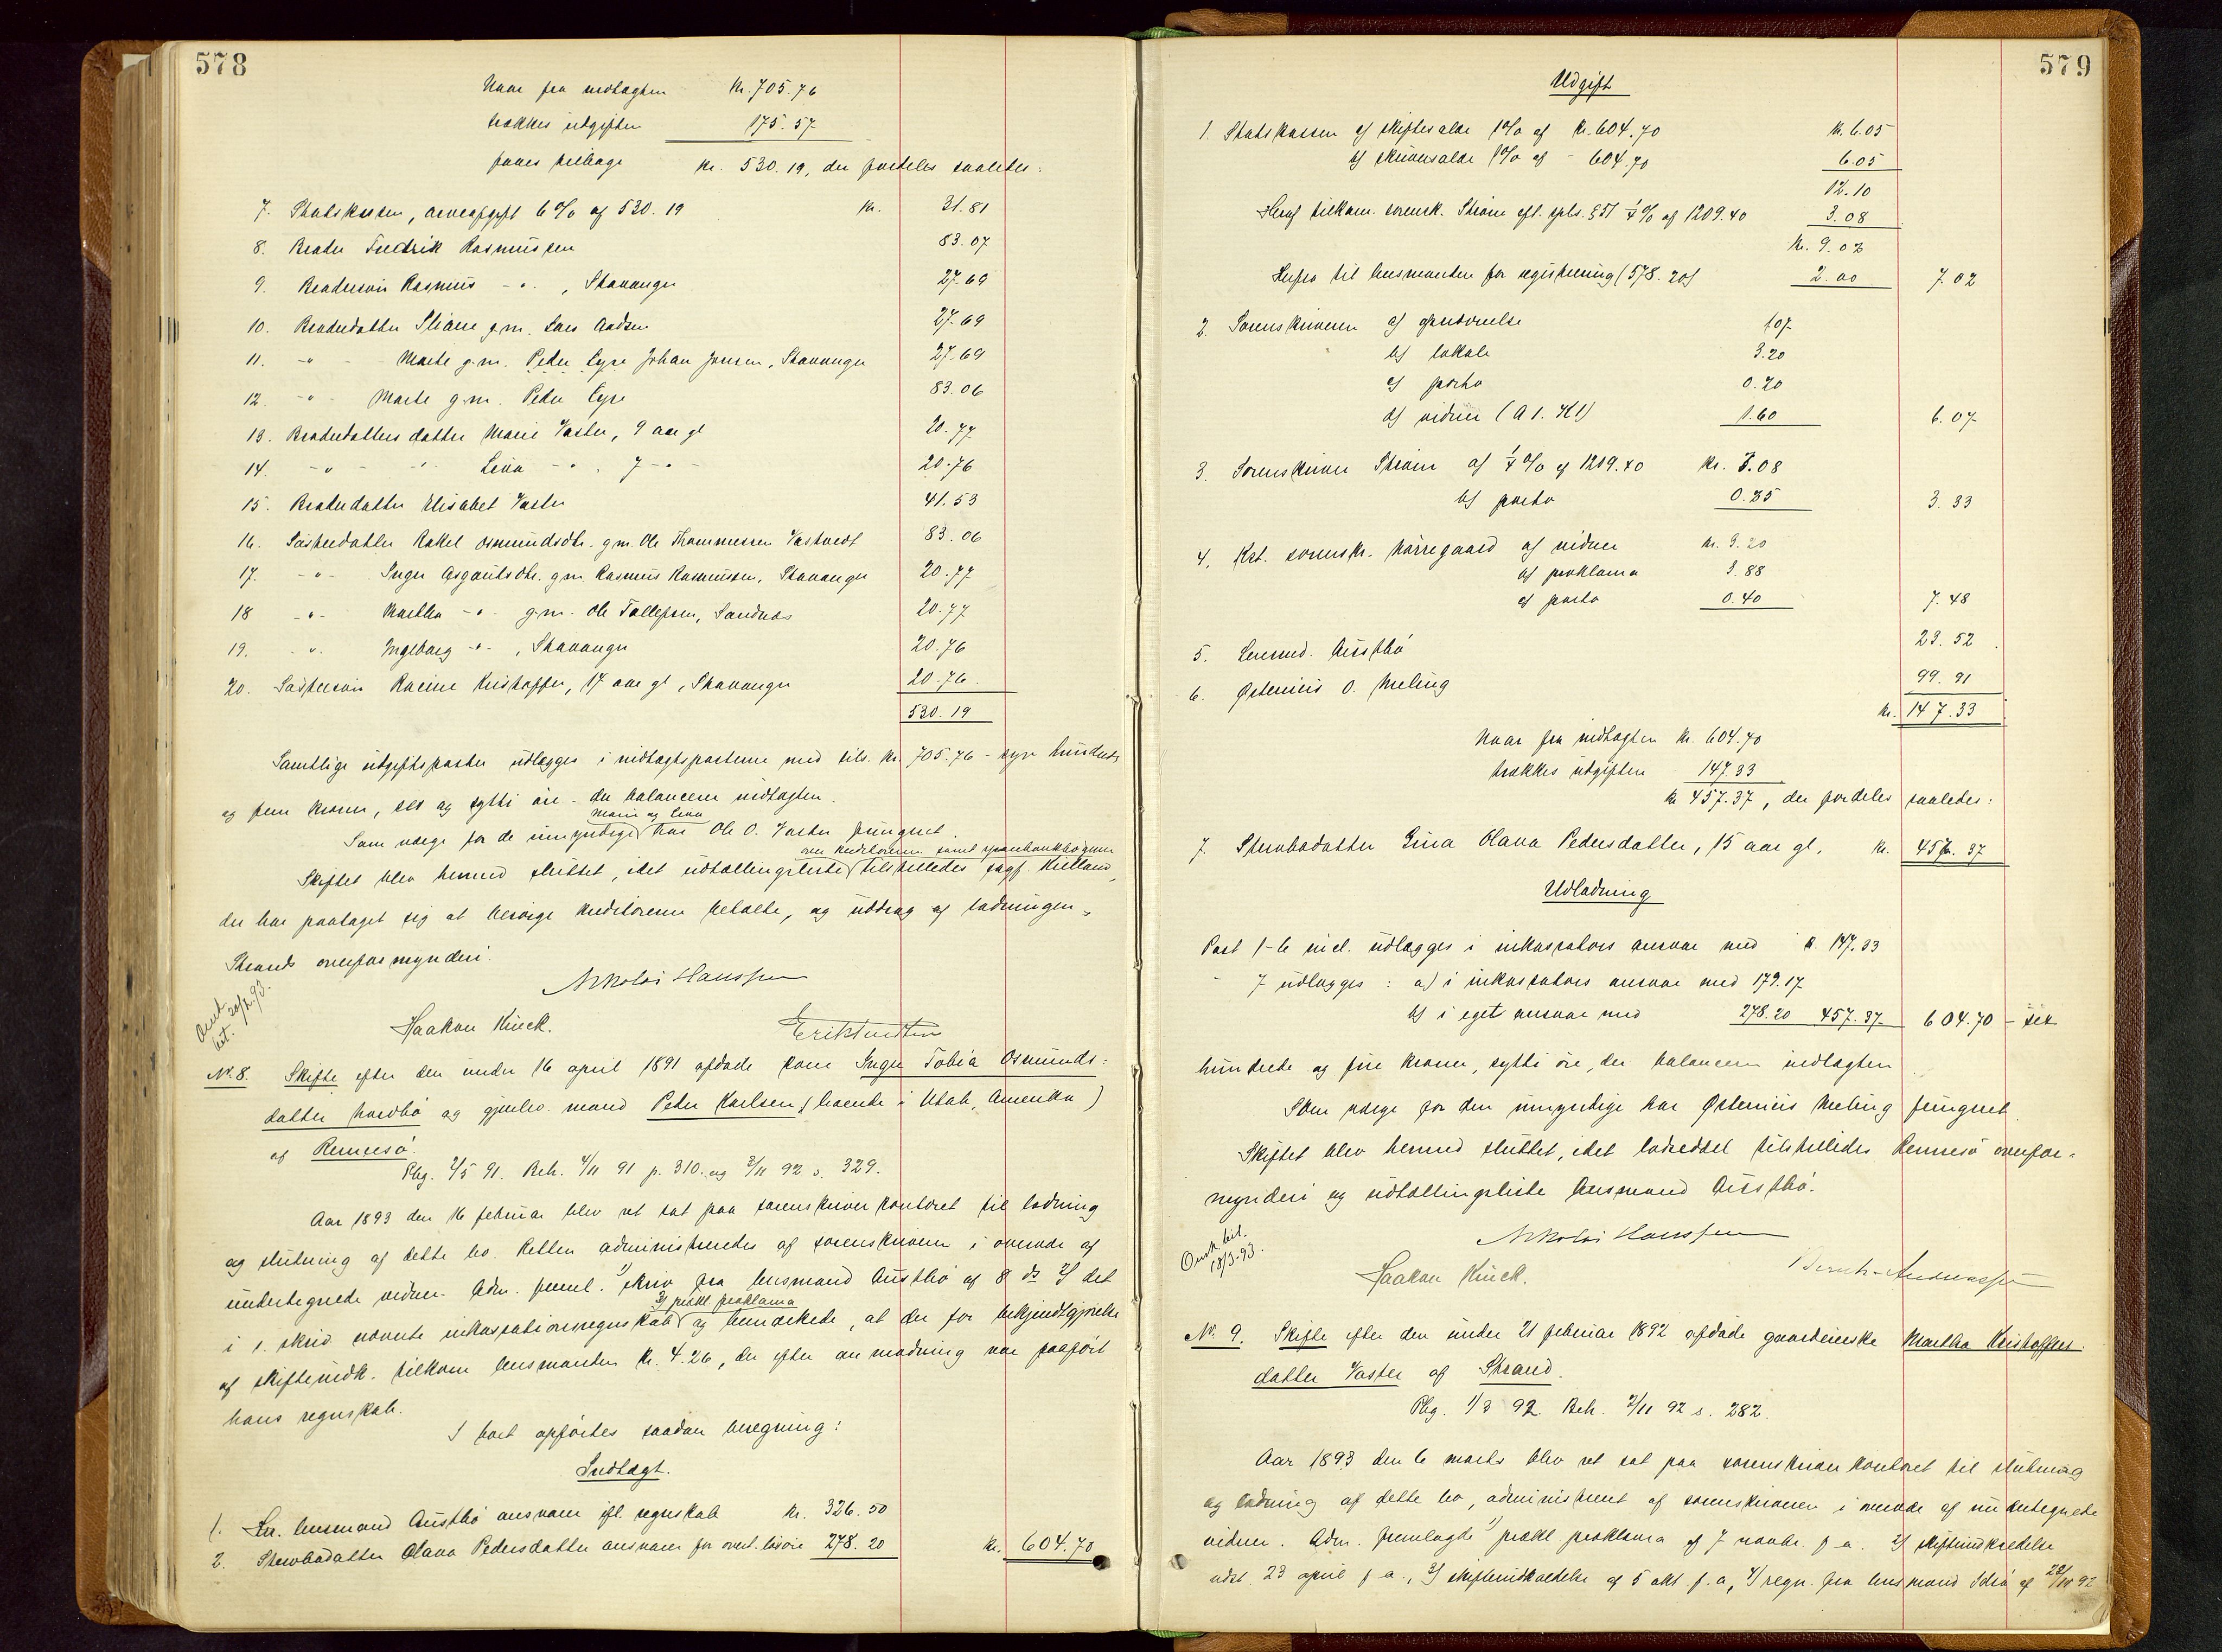 578
Naar fra indtægten Kr. 705.76
trækkes udgiften 175.57
faaes tilbage Kr. 530.19, der fordeles saaledes:
7. Statskassen, arveafgift 6% af 530.19 Kr. 31.81
8. Broder Fredrik Rasmussen 83.07
9. Brodersøn Rasmus -"- , Stavanger 27.69
10. Broderdatter Eliane g.m. Lars Aadsen 27.69
11. -"- Marte g.m. Peder Eyre Johan Jonsen, Stavanger 27.69
12. -"- Marte g.m. Peder Eyre 83.06
13. Broderdatters datter Marie Vaster, 9 aar gl 20.77
14. -"- -"- Lina -"- 7 -"- 20.76
15. Broderdatter Elisabet Vaster 41.53
16. Søsterdatter Rakel Osmundsdtr. g.m. Ole Thommesen Vastvedt 83.06
17. -"- Inger Asgautsdtr. g.m. Rasmus Rasmussen, Stavanger 20.77
18 -"- Martha -"- g.m. Ole Tollefsen, Sandnæs 20.77
19. -"- Ingeborg -"- , Stavanger 20.76
20. Søstersøn Kristoffer, 17 aar gl, Stavanger 20.76
530.19
Samtlige udgiftsposter udlægges i indtægtsposterne med tils. Kr. 705.76 - syv hundrede
og fem kroner, sex og sytti øre - der balancerer indtægten.
Marie og Lina
Som værge for de umyndige har Ole O. Vaster fungeret.
over kreditorerne samt sparebankbøgerne
Skiftet blev hermed sluttet, idet udtællingsliste tilstilledes sagf. Kielland,
der har paataget sig at besørge kreditorerne betalte, og uddrag af lodningen,
Strands overformynderi.
Nikolai Hanssen
Haakon Kinck. Erik Knudsen
Anm.
bit. 20/2.93.
No. 8. Skifte efter den under 16 april 1891 afdøde kone Inger Tobia Osmunds-
datter Hordbø og gjenlev. mand Peder Karlsen (boende i Utah, Amerika)
af Rennesø.
Phg. 2/5 91. Beh. 4/11 91 p. 310. og 3/11 92 s. 329.
Aar 1893 den 16 februar blev ret sat paa sorenskriverkontoret til lodning
og slutning af dette bo. Retten administreredes af sorenskriveren i overvær af
undertegnede vidner. Adm. freml. 1) skriv fra lensmand Austbø af 8 ds 2) det
3) prokl. proklama
i s. skriv nævnte inkassationsregnskab og bemærkede, at der for bekjendtgjørelse
af skifteindk. tilkom lensmanden Kr. 4.26, der efter anmodning var paaført
hans regnskab.
I boet opførtes saadan beregning:
Indtægt.
1. Ln. lensmand Austbø ansvarer ifl. regnskab Kr. 326.50
2. Stervbodatter Olava Pedersdatter ansvarer for overt. løsøre 278.20 Kr. 604.70
579
Udgift
1. Statskassen a) skiftesalær 1% af Kr. 604.70 Kr. 6.05
b) skriversalær 1% af - 604.70 6.05
12.10
Heraf tilkom. sorensk. Strøm eft. spls. § 51 1/4% af 1209.40 3.08
Kr. 9.02
Herfra til lensmanden for registrering (578.20) 2.00 7.02
2. Sorenskriveren a) opbevarelse 1.07
b) lokale 3.20
c) porto 0.20
d) vidner (A 1. H1) 1.60 6.07
3. Sorenskriver Strøm a) 1/4% af 1209.40 Kr. 3.08
b) porto 0.25 3.33
4. Kst. sorenskr. Nørregaard a) vidner Kr. 3.20
b) proklama 3.88
c) porto 0.40 7.48
5. Lensmd. Austbø 23.52
6. Østenius O. Meling 99.91
Kr. 147.33
Naar fra indtægten Kr. 604.70
trækkes udgiften 147.33
Kr 457.37, der fordeles saaledes:
7. Stervbodatter Gina Olava Pedersdatter, 15 aar gl, Kr. 457.37
Udlodning
Post 1-6 incl. udlægges i inkassators ansvar med Kr. 147.33
- 7 udlægges: a) i inkassators ansvar med 179.17
b) i eget ansvar med 278.20 457.37 604.70 - sex
hundrede og fire kroner, sytti øre, der balancerer indtægten.
Som værge for den umyndige har Østenius Meling fungeret.
Skiftet blev hermed sluttet, idet lodseddel tilstilledes Rennesø overfor-
mynderi og udtællingsliste lensmand Austbø.
Nikolai Hanssen
Haakon Kinck. Bernh. Andreassen
Anm. bit.
18/3.93.
No. 9. Skifte efter den under 21 februar 1892 afdøde gaardeierske Martha Kristoffers-
datter Vaster af Strand.
Phg. 1/3 92. Beh. 2/11 92 s. 282.
Aar 1893 den 6 marts blev ret sat paa sorenskriverkontoret til slutning
og lodning af dette bo, administreret af sorenskriveren i overvær af undertegnede
vidner. Adm. fremlagde 1) prokl proklama af 7 novbr. f.a. 2) skifteindkaldelse
udst. 23 april f.a., 3) skifteindkaldelse af 5 okt. f.a, 4) regn. fra lensmand Idsø af 22/10 92